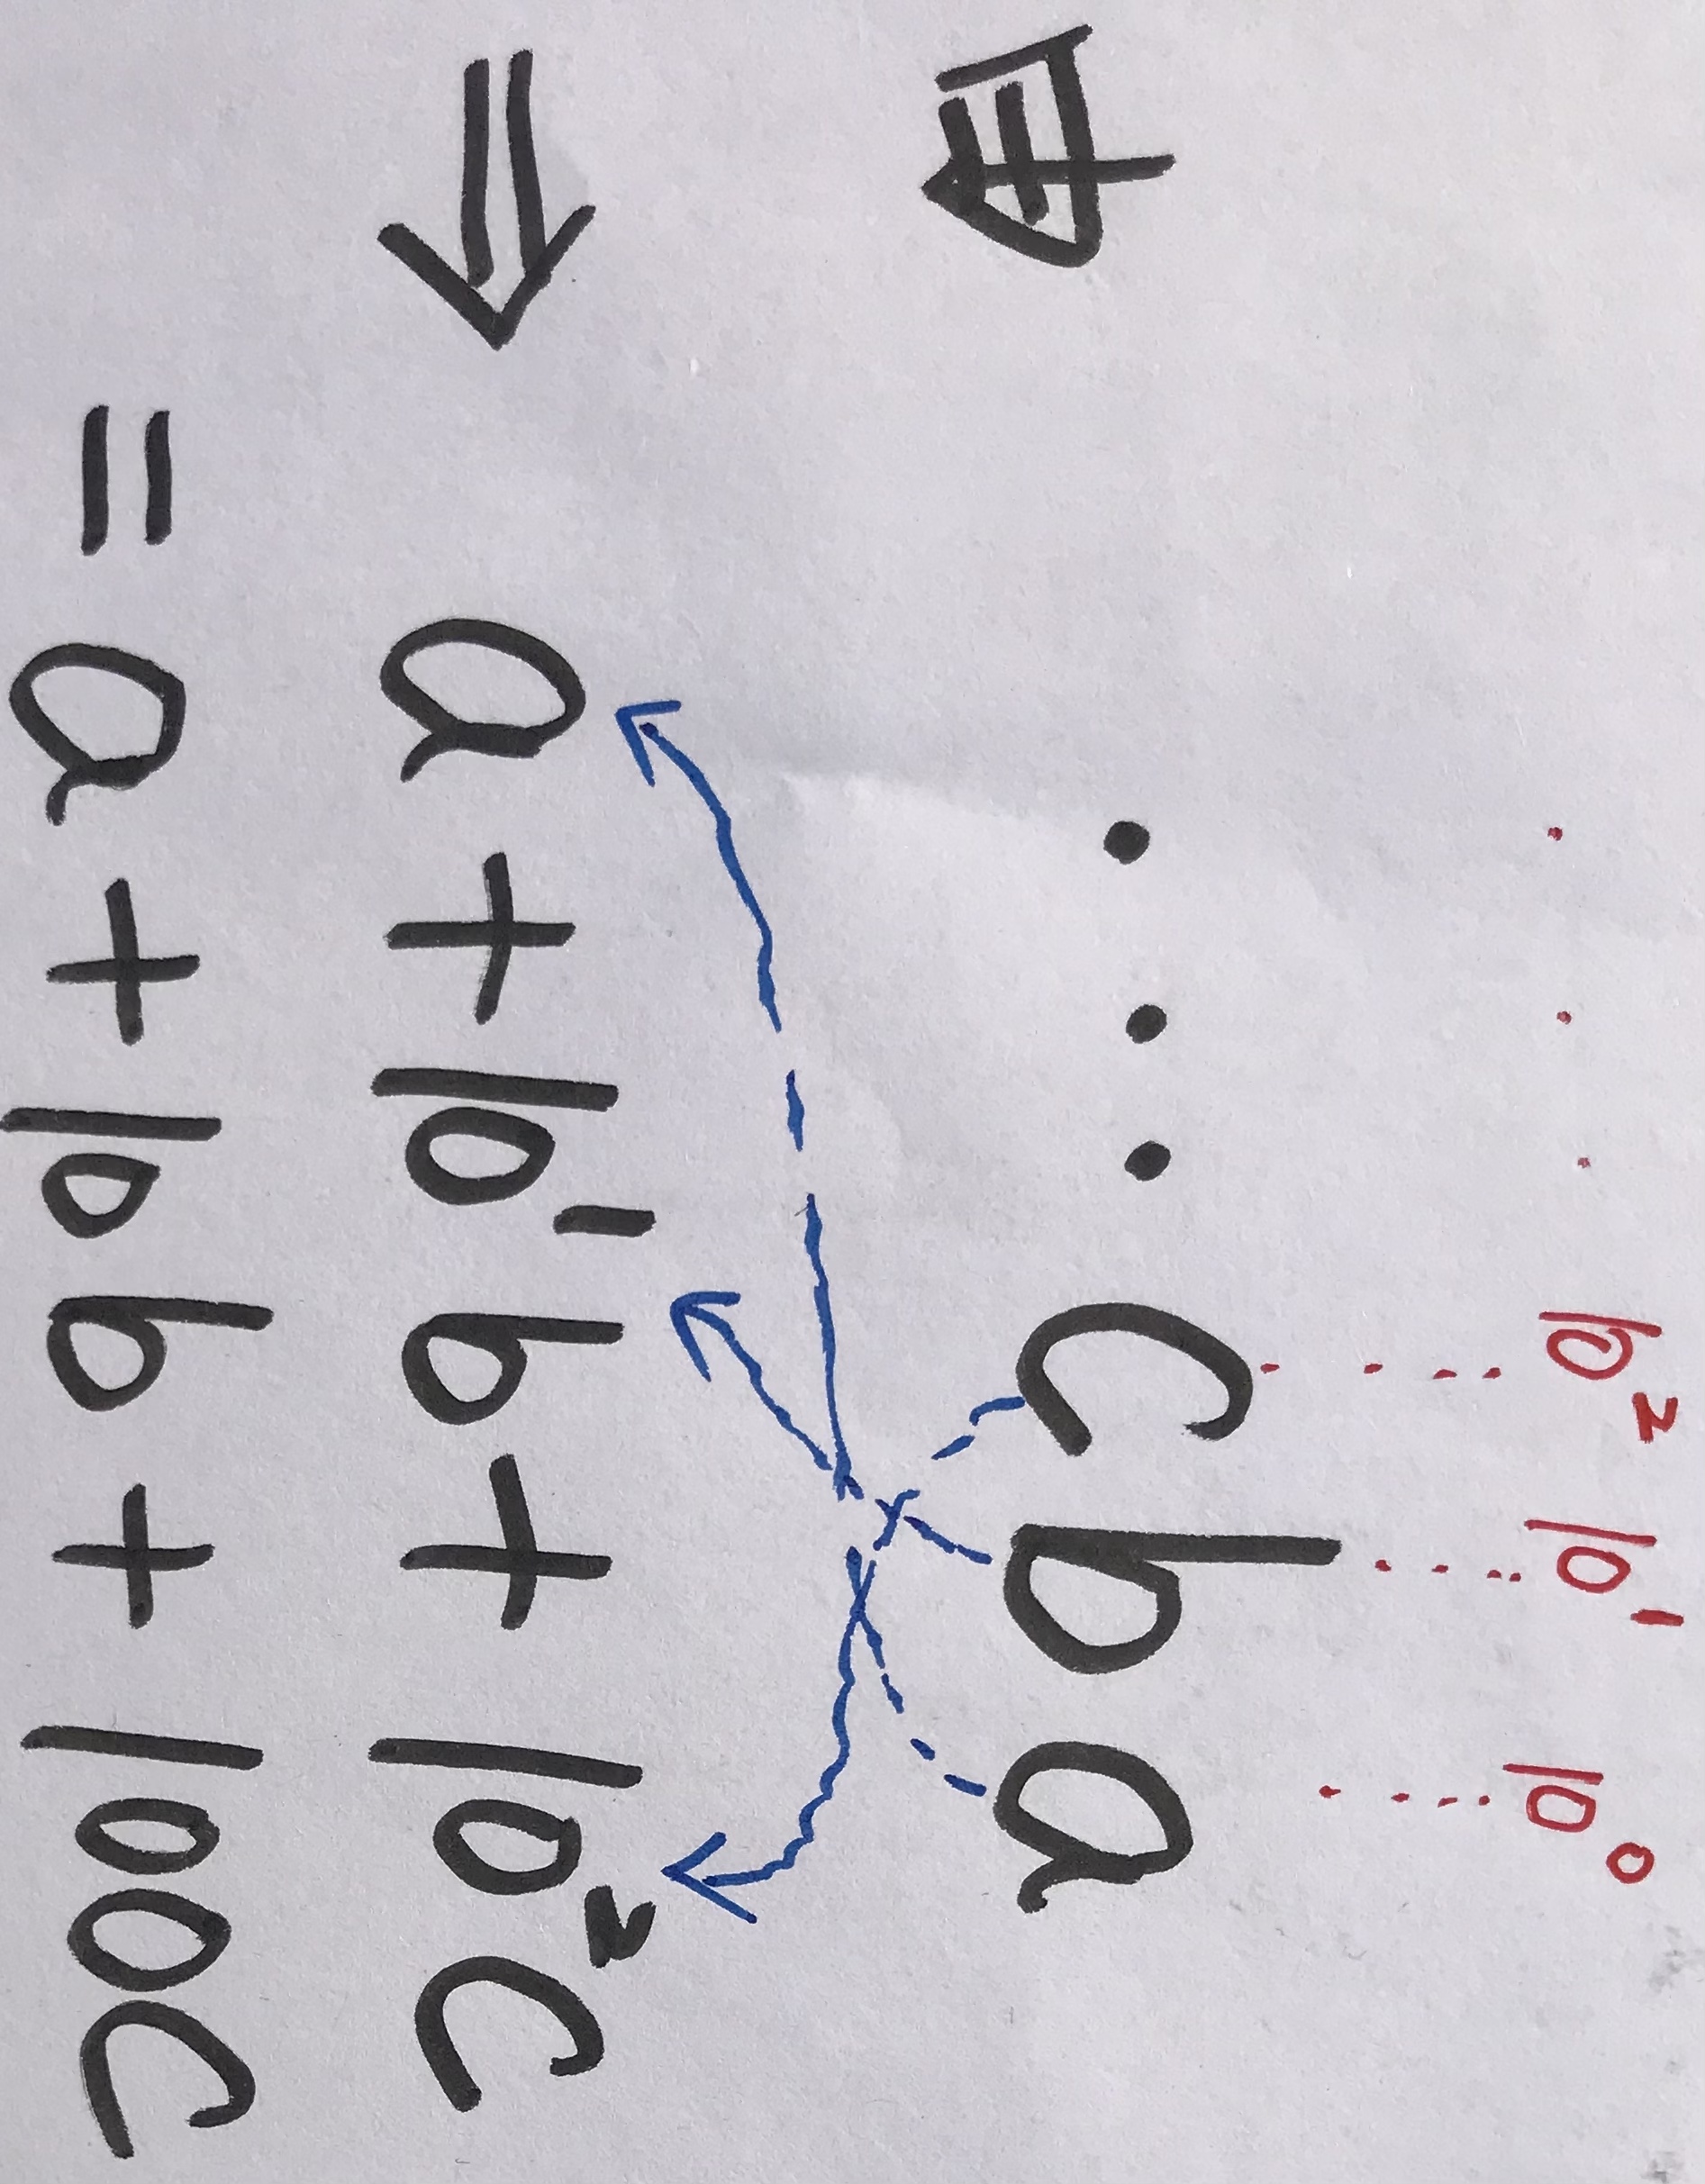 ... 10² 10¹ 10⁰
由 ... c b a
⇒ a + 10¹ b + 10² c
= a + 10 b + 100 c